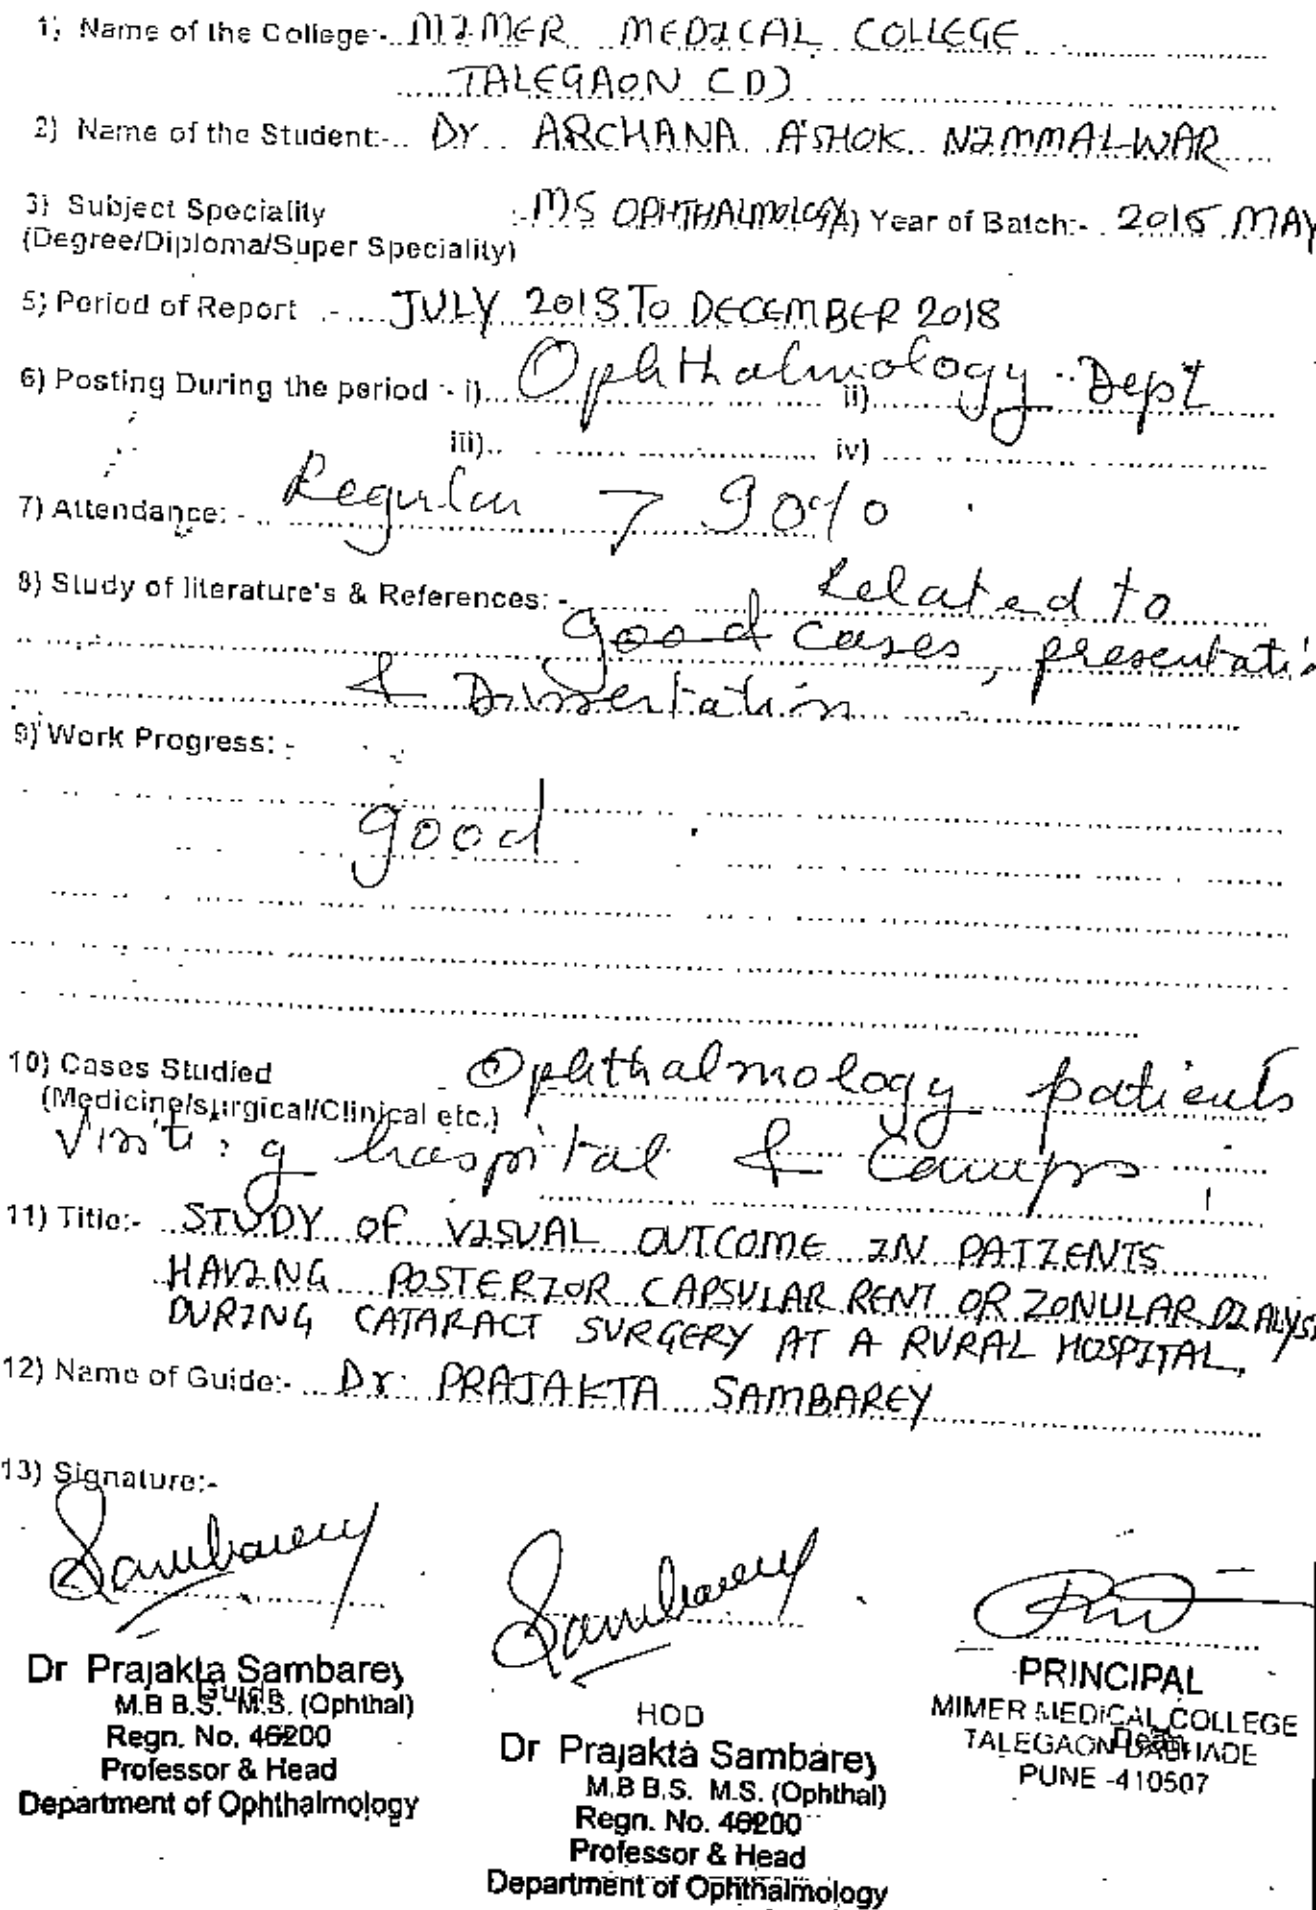 1) Name of the College:- MIMER MEDICAL COLLEGE
TALEGAON (D)
2) Name of the Student:- Dr. ARCHANA ASHOK NIMMALWAR
3) Subject Speciality :- MS OPHTHALMOLOGY 4) Year of Batch:- 2015 MAY
(Degree/Diploma/Super Speciality)
5) Period of Report :- JULY 2018 TO DECEMBER 2018
6) Posting During the period :- i) Ophthalmology ii) Dept
iii) iv)
7) Attendance: - Regular > 90%
8) Study of literature's & References: - Related to
good cases, presentatio
& Dissertation
9) Work Progress: -
good
10) Cases Studied - Ophthalmology patients
(Medicine/surgical/Clinical etc.)
visiting hospital & camps
11) Title:- STUDY OF VISUAL OUTCOME IN PATIENTS
HAVING POSTERIOR CAPSULAR RENT OR ZONULAR DIALYSI
DURING CATARACT SURGERY AT A RURAL HOSPITAL,
12) Name of Guide:- Dr. PRAJAKTA SAMBAREY
13) Signature:-
Sambarey Sambarey
Dr Prajakta Sambarey
Guide
M.B B.S. M.S. (Ophthal)
Regn. No. 46200
Professor & Head
Department of Ophthalmology
HOD
Dr Prajakta Sambarey
M.B B.S. M.S. (Ophthal)
Regn. No. 46200
Professor & Head
Department of Ophthalmology
PRINCIPAL
MIMER MEDICAL COLLEGE
Dean
TALEGAON DABHADE
PUNE -410507